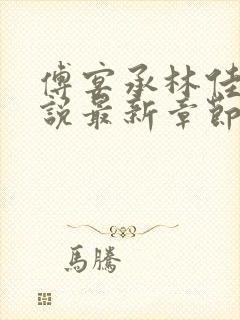 傅宴承林佳
說最新章節
馬騰